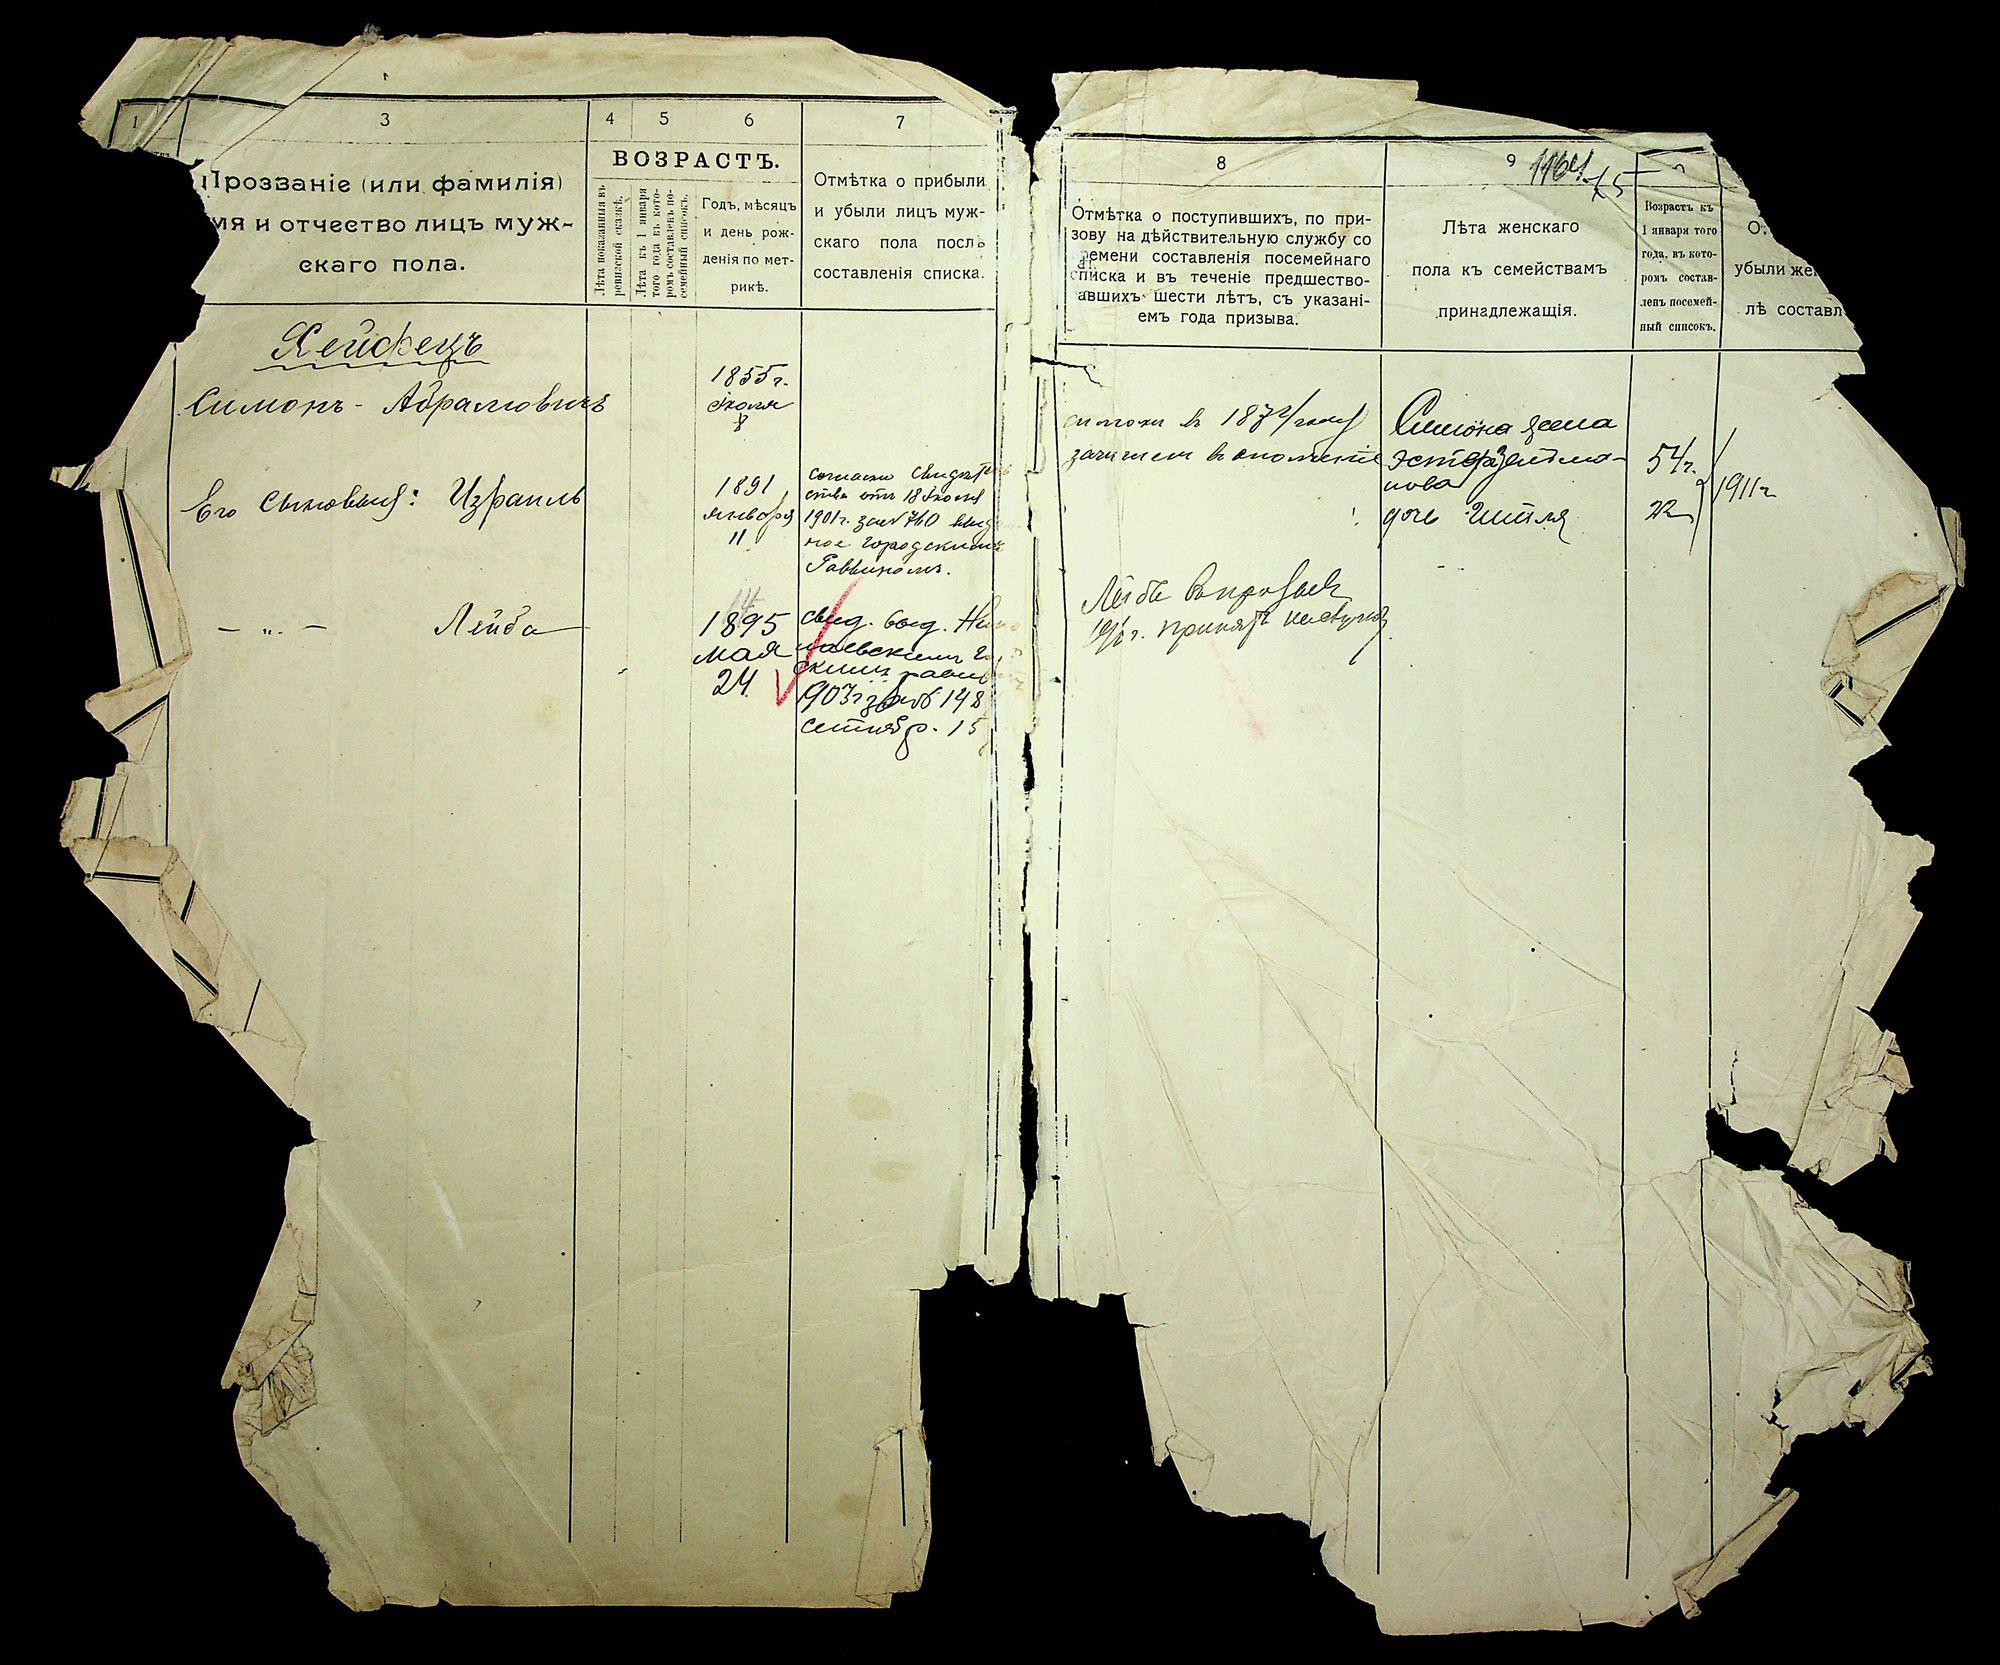 1
3
4
5
6
7
Прозваніе (или фамилія)
мя и отчество лицъ муж-
скаго пола.
ВОЗРАСТЪ.
Лѣта показанныя въ
ревизской сказкѣ.
Лѣта къ 1 января
того года въ кото-
ромъ составленъ по-
семейный списокъ.
Годъ, мѣсяцъ
и день рож-
денія по мет-
рикѣ.
Отмѣтка о прибыли
и убыли лицъ муж-
скаго пола послѣ
составленія списка.
Хейфецъ
Симонъ - Абрамовичъ
1855 г.
Іюля
8
Его сыновья: Израиль
1891
января
11
Согласно свидѣтель
ства отъ 18 Іюня
1901 г. за № 760 выд
ное Городскимъ
Раввиномъ.
— „ — Лейба
14
1895
мая
24
свид. выд. Нико
лаевскимъ г
скимъ равви
903 г. за № 148
сентябр. 15
8
9
1164
Отмѣтка о поступившихъ, по при-
зову на дѣйствительную службу со
ремени составленія посемейнаго
списка и въ теченіе предшество-
авшихъ шести лѣтъ, съ указані-
емъ года призыва.
Лѣта женскаго
пола къ семействамъ
принадлежащія.
Возрастъ къ
1 января того
года, въ кото-
ромъ состав-
ленъ посемей-
ный списокъ.
О
убыли же
лѣ составл
Симонъ в 187 году
зачислен в ополченіе
Симона жена
Эстер Зельма-
нова
54 г.
1911 г
дочь
22
Лейба
г. принятъ